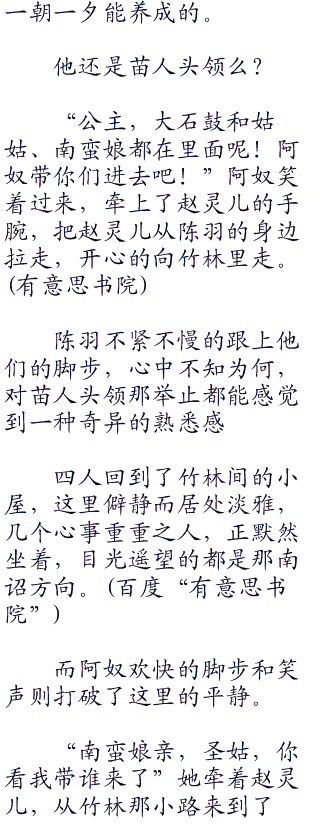 一朝一夕能养成的。
他还是苗人头领么？
“公主，大石鼓和姑
姑、南蛮娘都在里面呢！阿
奴带你们进去吧！”阿奴笑
着过来，牵上了赵灵儿的手
腕，把赵灵儿从陈羽的身边
拉走，开心的向竹林里走。
(有意思书院)
陈羽不紧不慢的跟上他
们的脚步，心中不知为何，
对苗人头领那举止都能感觉
到一种奇异的熟悉感
四人回到了竹林间的小
屋，这里僻静而居处淡雅，
几个心事重重之人，正默然
坐着，目光遥望的都是那南
诏方向。(百度“有意思书
院”)
而阿奴欢快的脚步和笑
声则打破了这里的平静。
“南蛮娘亲，圣姑，你
看我带谁来了”她牵着赵灵
儿，从竹林那小路来到了